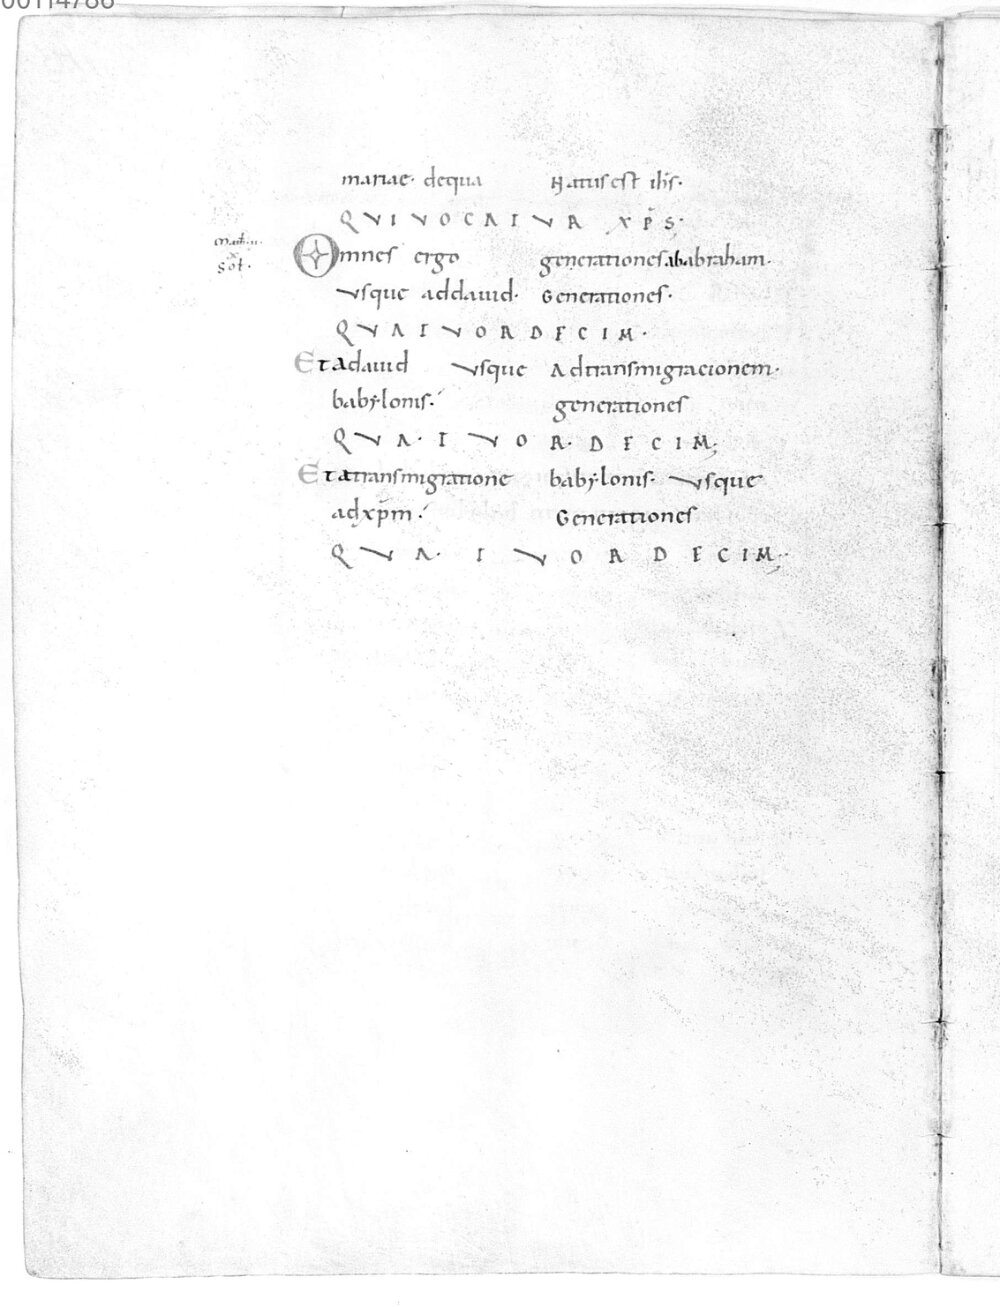 00114786
mariae· dequa Natus est ihs·
QVIVOCATVR XPS·
Math· ii·
x
Sol·
Omnes ergo generationes ababraham·
Vsque addauid· Generationes·
QVATVORDECIM·
Et adauid Vsque Adtransmigracionem·
babylonis· generationes
QVA·TVOR·DECIM;
Et atransmigratione babylonis· Vsque
adxpm· Generationes
QVA·TVORDECIM·